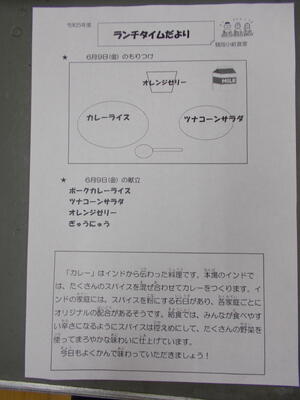 令和5年度
ランチタイムだより
★ 6月9日(金)のもりつけ
オレンジゼリー
MILK
カレーライス
ツナコーンサラダ
★ 6月9日(金)の献立
ポークカレーライス
ツナコーンサラダ
オレンジゼリー
ぎゅうにゅう
「カレー」はインドから伝わった料理です。本場のインドで
は、たくさんのスパイスを混ぜ合わせてカレーをつくります。イ
ンドの家庭には、スパイスを粉にする石臼があり、各家庭ごとに
オリジナルの配合があるそうです。給食では、みんなが食べやす
い辛さになるようにスパイスは控えめにして、たくさんの野菜を
使ってまろやかな味わいに仕上げています。
今日もよくかんで味わっていただきましょう!